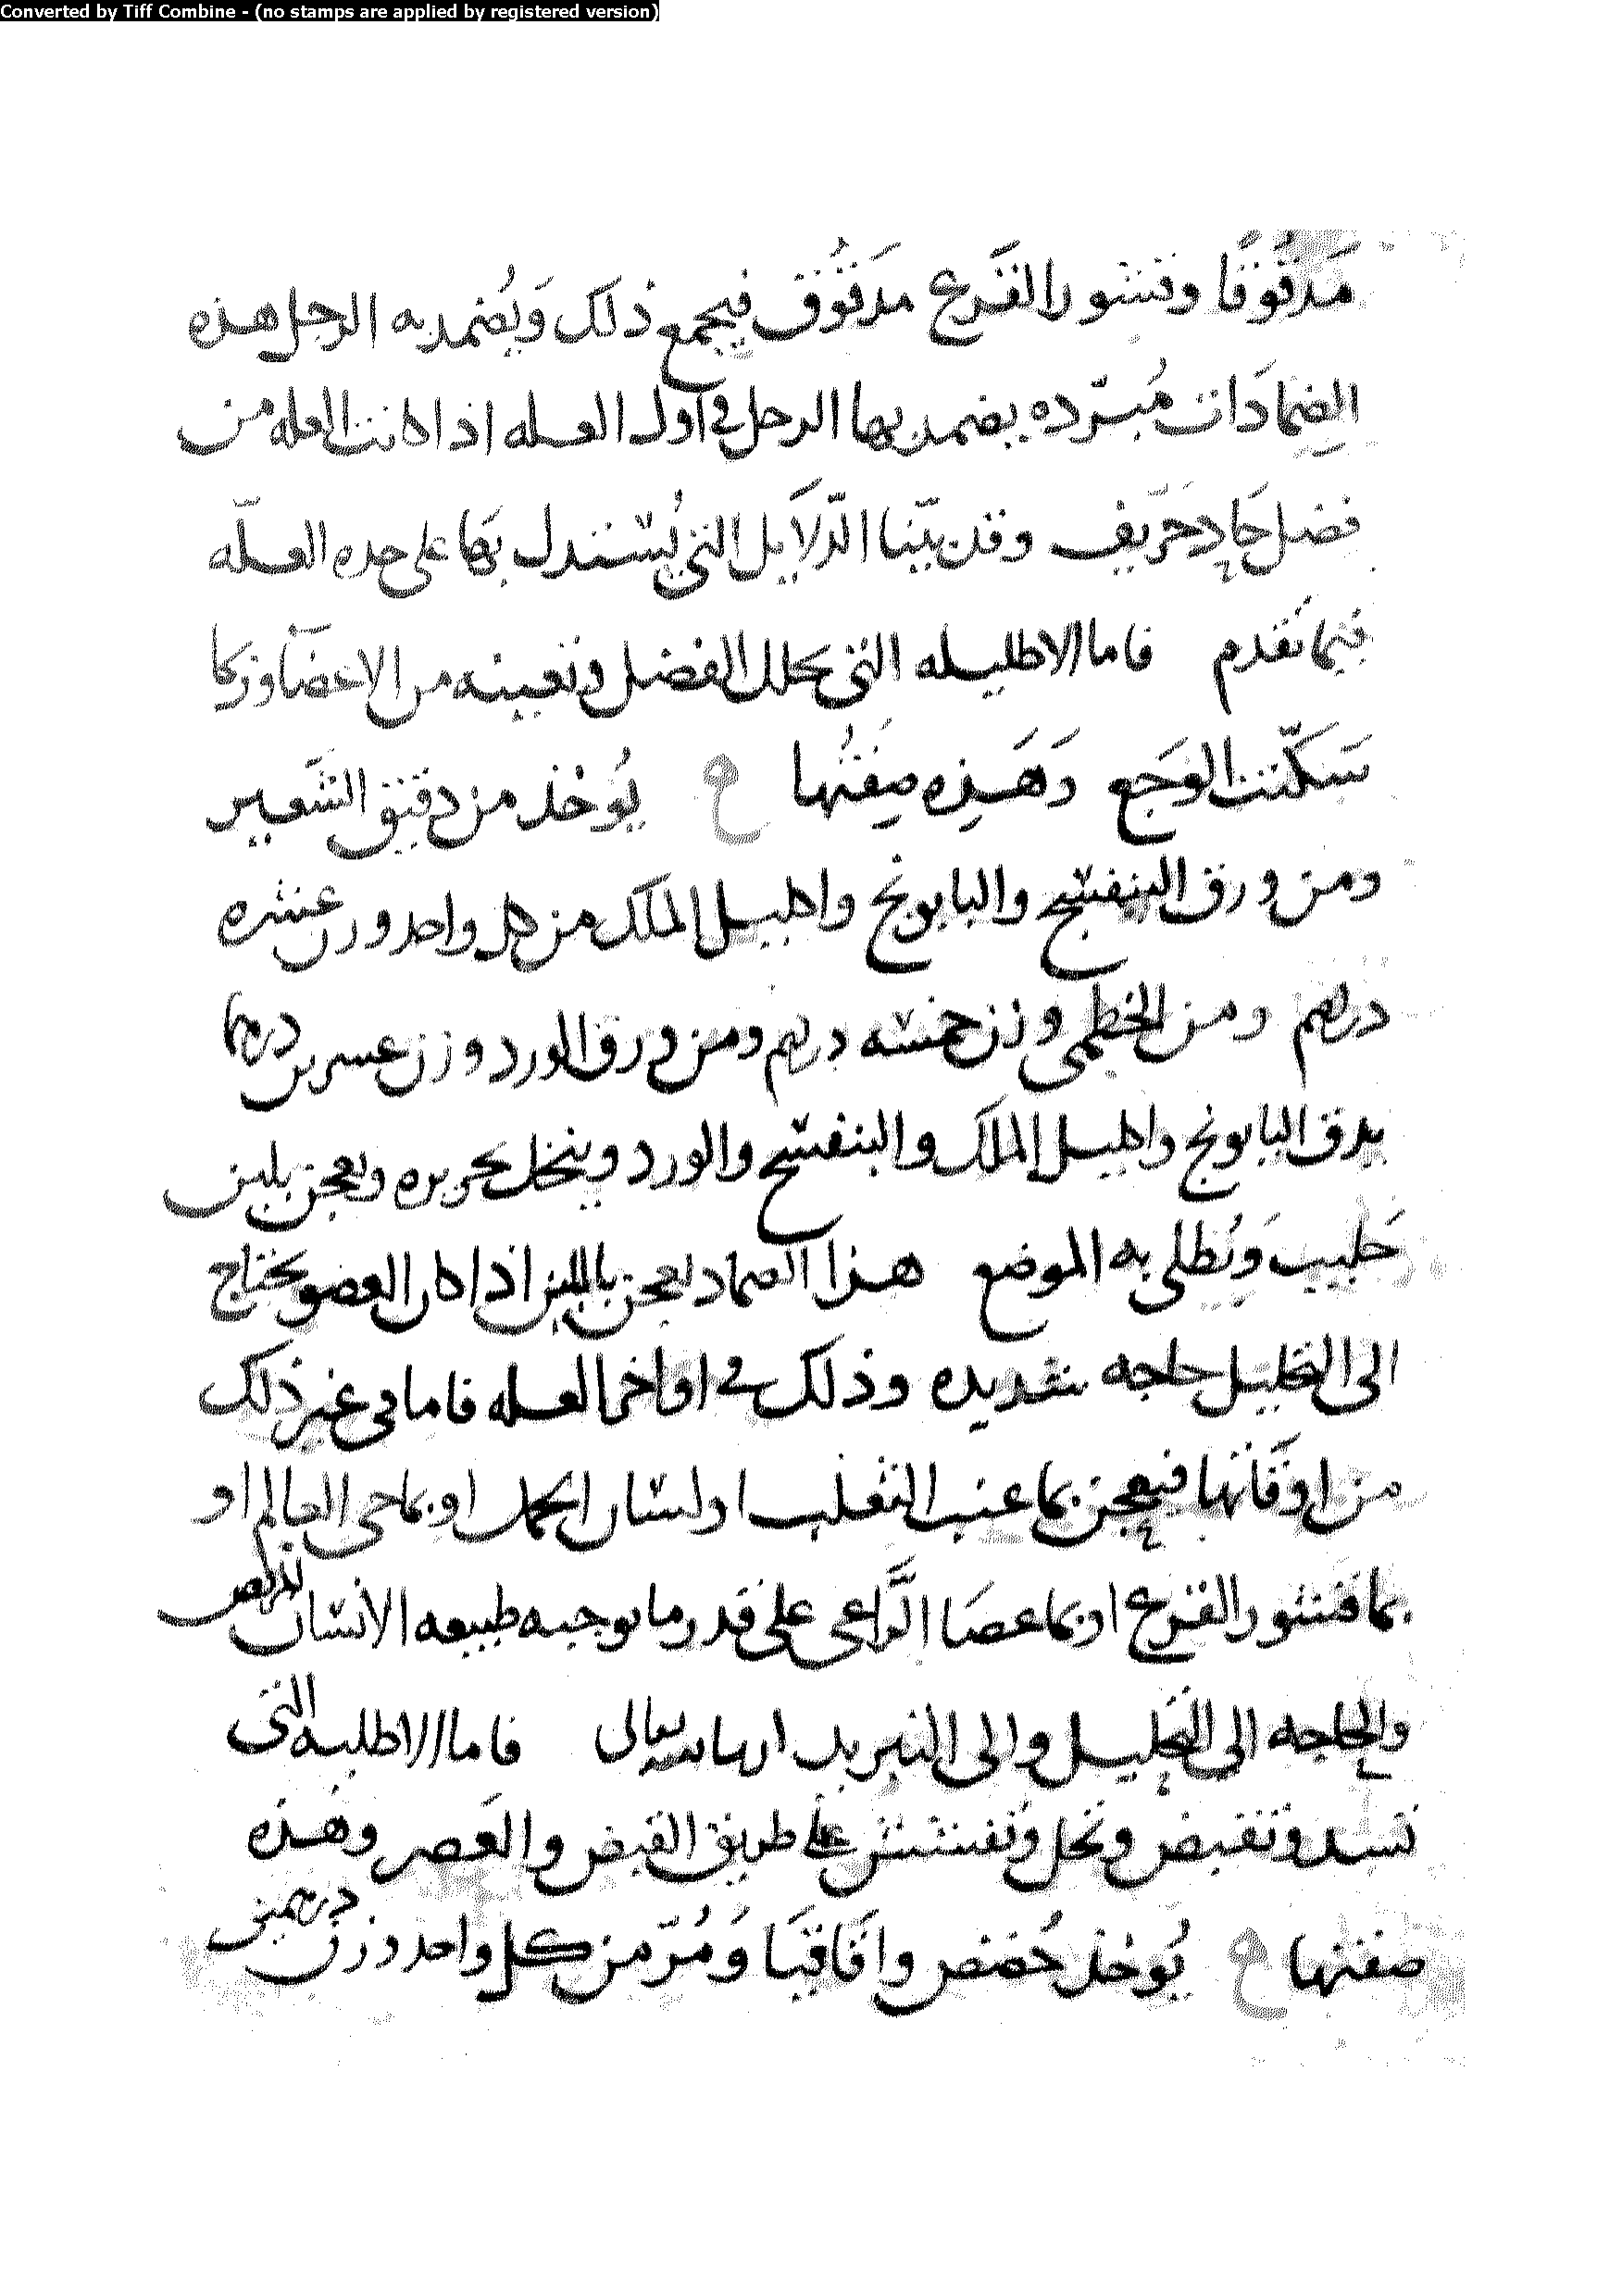 Converted by Tiff Combine - (no stamps are applied by registered version)
مَدقُوقًا وقشور القَرع مَدقُوق فيجمع ذلك وَيُضمد به الرجل هذه
الضِمادَات مُبرّده يضمد بها الرجل في اول العله اذا كانت العله من
فضل حَادٍ حَرّيف وقد بيّنا الدّلَايل التي يُستدل بهَا على هده العلّه
فيما تقدم فاما الاطليله التي تحلل الفضل وتعينه من الاعضَا وربما
سَكّنت الوَجَع وَهَذِهِ صِفتُها يُوخذ من دقيق الشَعير
ومن ورق البنفسج والبابونج واكليل الملك من كل واحد وزن عشره
درهم ومن الخطمى وزن خمسه درهم ومن ورق الورد وزن عسرين درهما
يدق البابونج واكليل الملك والبنفسج والورد وينخل بحريره ويعجن بلبن
حَليب وَيُطلى به الموضع هذا الضماد يعجن باللبن اذا كان العضو يحتاج
الى التحليل حاجه شديده وذلك في اواخر العله فاما في غير ذلك
من اوقَاتها فيعجن بما عنب الثعلب او لسان الحمل او بما حى العالم او
بما قشور القرع او بما عصَا الرَّاعى على قدر ما توجبه طبيعه الانسان المريض
والحاجه الى التحليل والى التبريد ان شا الله تعالى فاما الاطليه التى
تسد وتقبض وتحل وتفشش على طريق القبض والعَصر وهَذه
صفتها يُوخذ حُضض واقَاقيَا وَمُرّ من كل واحد وزن درهمين